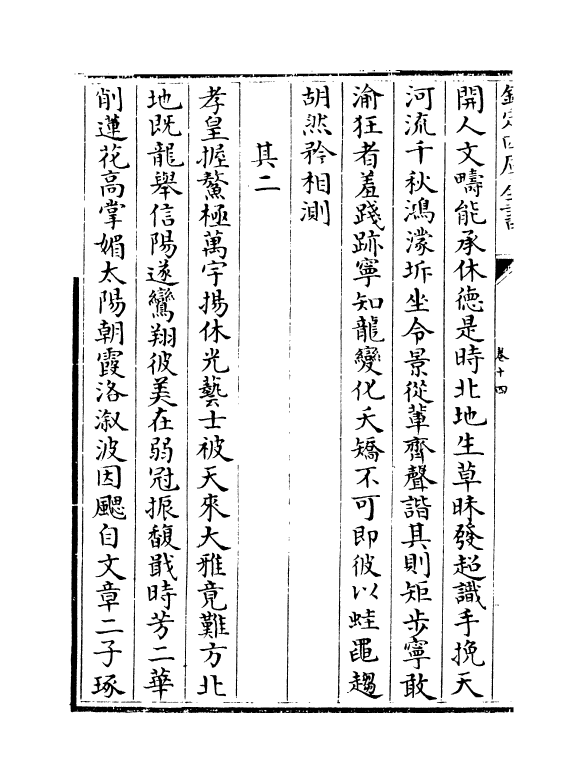 欽定四庫全書
卷十四
開人文疇能承休德是時北地生草昧發超識手挽天
河流千秋鴻濛坼坐令景從輩齊聲諧其則矩步寧敢
渝狂者羞踐跡寧知龍變化夭矯不可即彼以蛙黽趨
胡然矜相測
其二
孝皇握鰲極萬宇揚休光藝士被天來大雅竟難方北
地既龍舉信陽遂鸞翔彼美在弱冠振馥戢時芳二華
削蓮花高掌媚太陽朝霞洛溆波因颸自文章二子琢